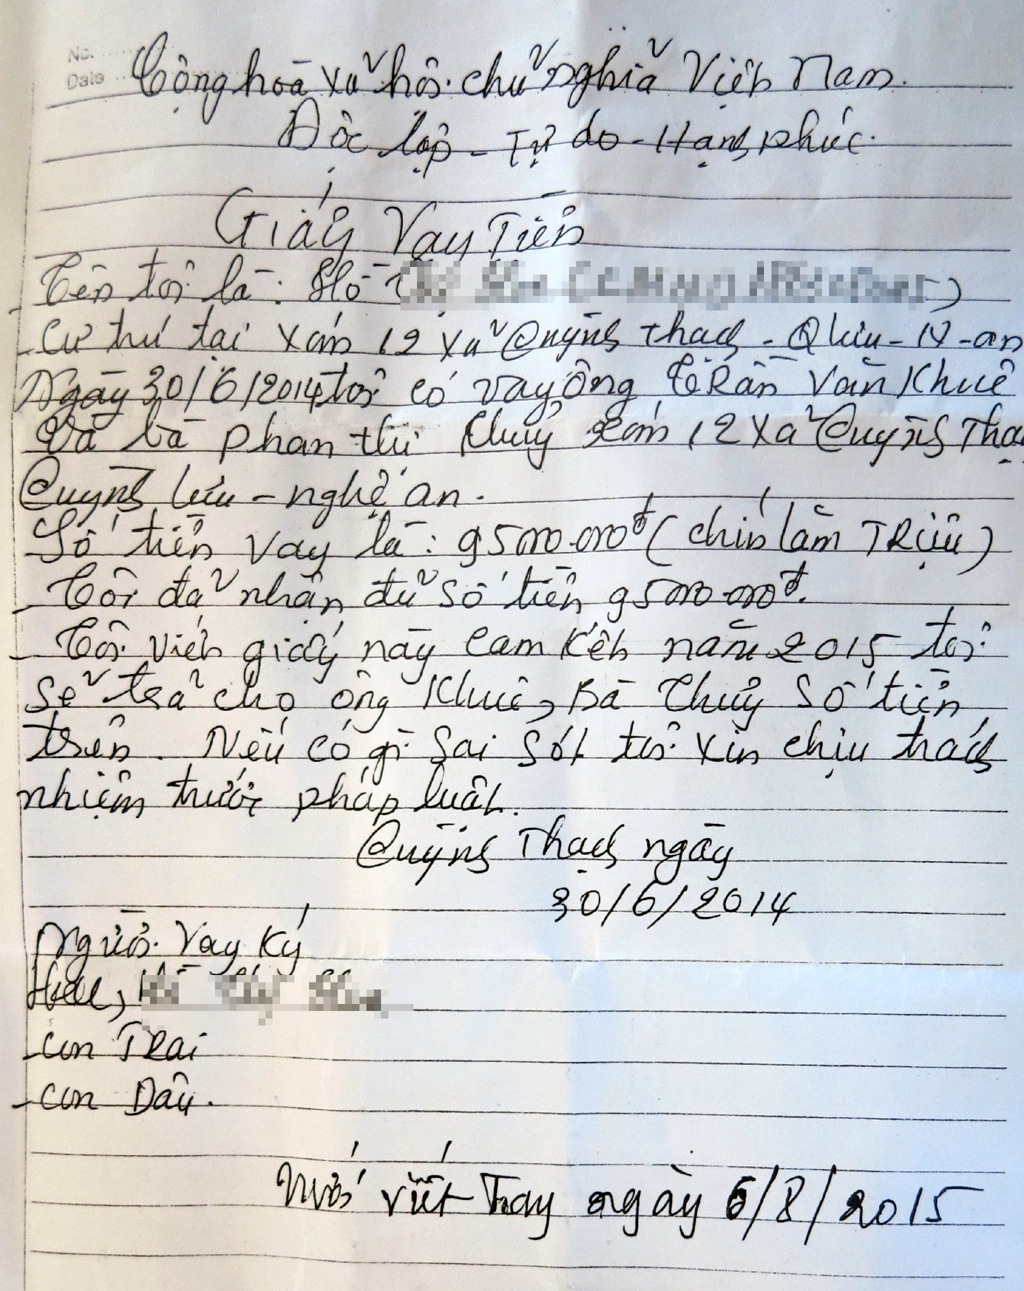 No.
Date
Cộng hoà xã hội chủ nghĩa Việt Nam.
Độc lập - Tự do - Hạnh phúc.
Giấy Vay Tiền
- Tên tôi là: Hồ
- Cư trú tại Xóm 12 xã Quỳnh Thạch - Q lưu - N-an
Ngày 30/6/2014 tôi có vay ông Trần Văn Khuê
Và bà phan thị Thuỷ xóm 12 xã Quỳnh Thạ
Quỳnh lưu - nghệ an.
Số tiền vay là: 95000.000đ (chín lăm TRiệu)
- Tôi đã nhận đủ số tiền 95000.000đ.
- Tôi viết giấy này cam kết năm 2015 tôi
sẽ trả cho ông Khuê, Bà Thuỷ số tiền
trên. Nếu có gì sai sót tôi xin chịu trách
nhiệm trước pháp luật.
Quỳnh Thạch ngày
30/6/2014
Người Vay Ký
- con TRai
- con Dâu.
viết Thay ngày 6/8/2015